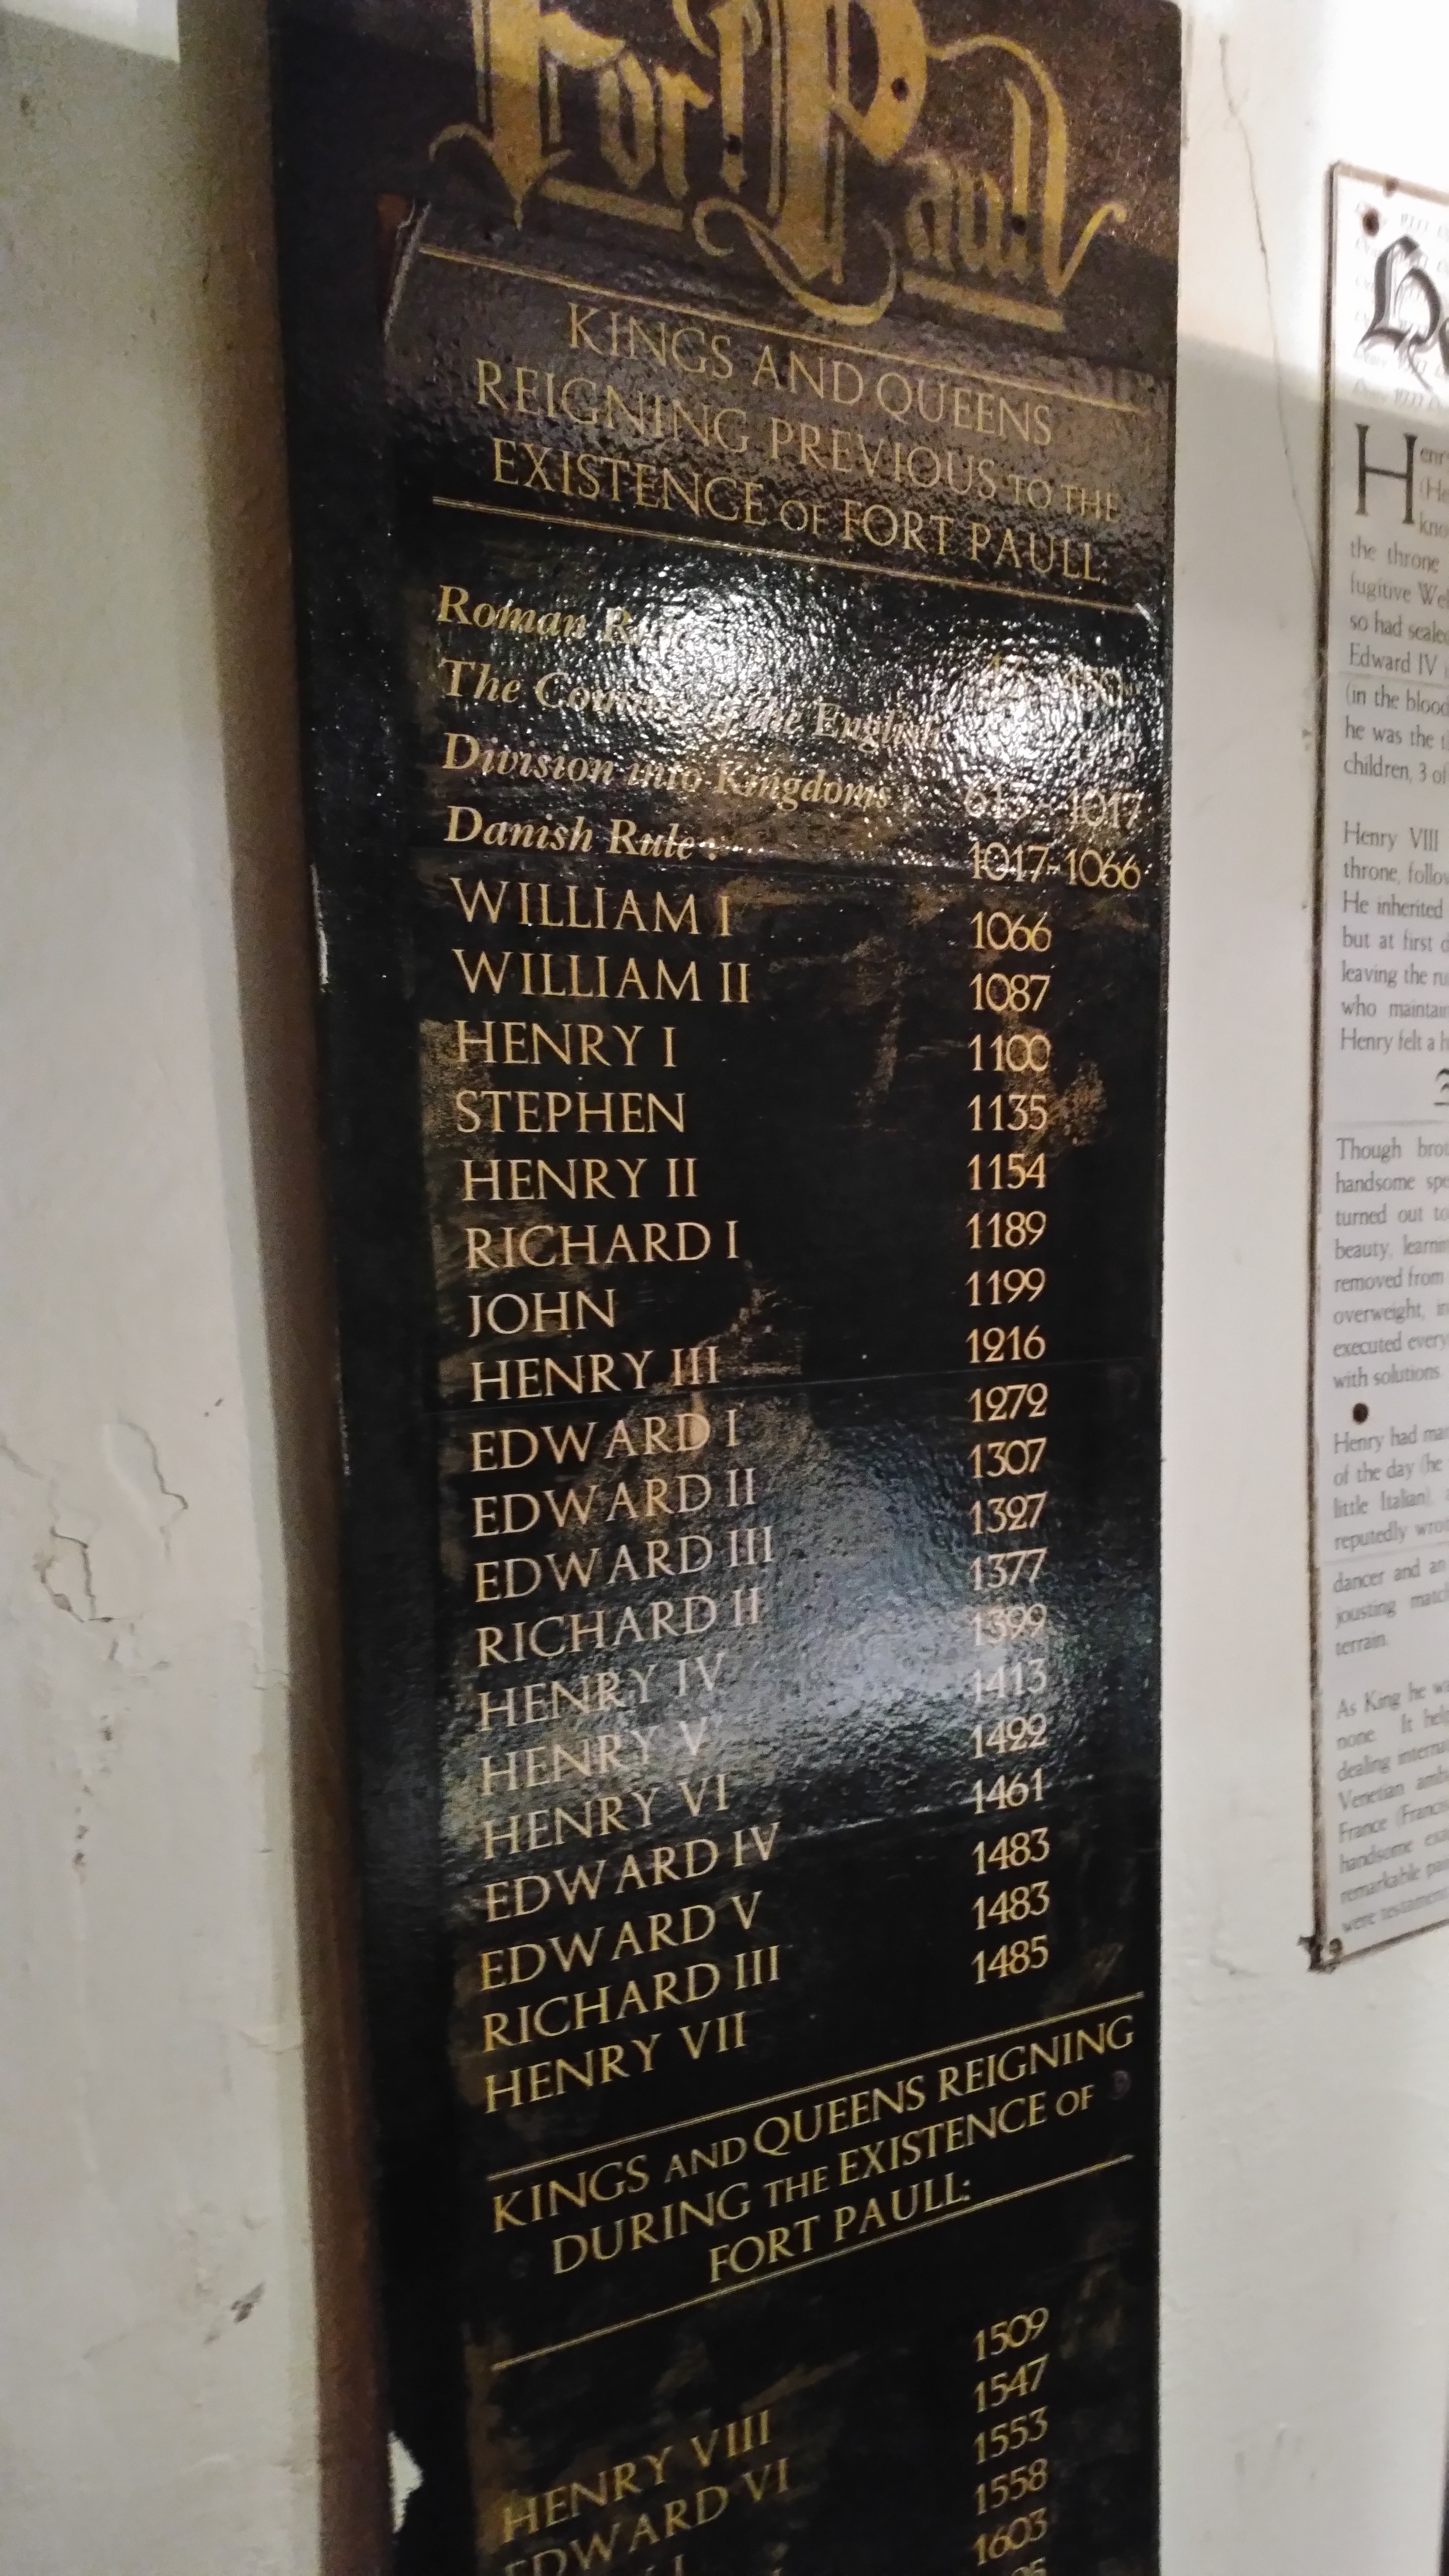 Fort Paull
KINGS AND QUEENS
REIGNING PREVIOUS TO THE
EXISTENCE OF FORT PAULL:
Roman
The the English
Division into Kingdoms : 613 - 1017
Danish Rule : 1017-1066
WILLIAM I 1066
WILLIAM II 1087
HENRY I 1100
STEPHEN 1135
HENRY II 1154
RICHARD I 1189
JOHN 1199
HENRY III 1216
EDWARD I 1272
EDWARD II 1307
EDWARD III 1327
RICHARD II 1377
HENRY IV 1399
HENRY V 1413
HENRY VI 1422
EDWARD IV 1461
EDWARD V 1483
RICHARD III 1483
HENRY VII 1485
KINGS AND QUEENS REIGNING
DURING THE EXISTENCE OF
FORT PAULL:
HENRY VIII 1509
EDWARD VI 1547
1553
1558
1603
the throne
fugitive
so had
Edward IV
(in the blood
he was the
children, 3 of
Henry VIII
throne,
He inherited
but at first
leaving the
who
Henry felt a
Though
handsome
turned out to
beauty,
removed from
overweight,
executed every
with solutions
Henry had
of the day (he
little Italian).
reputedly
dancer and an
jousting
terrain.
As King he
none. It
dealing
Venetian
France
handsome
remarkable
were